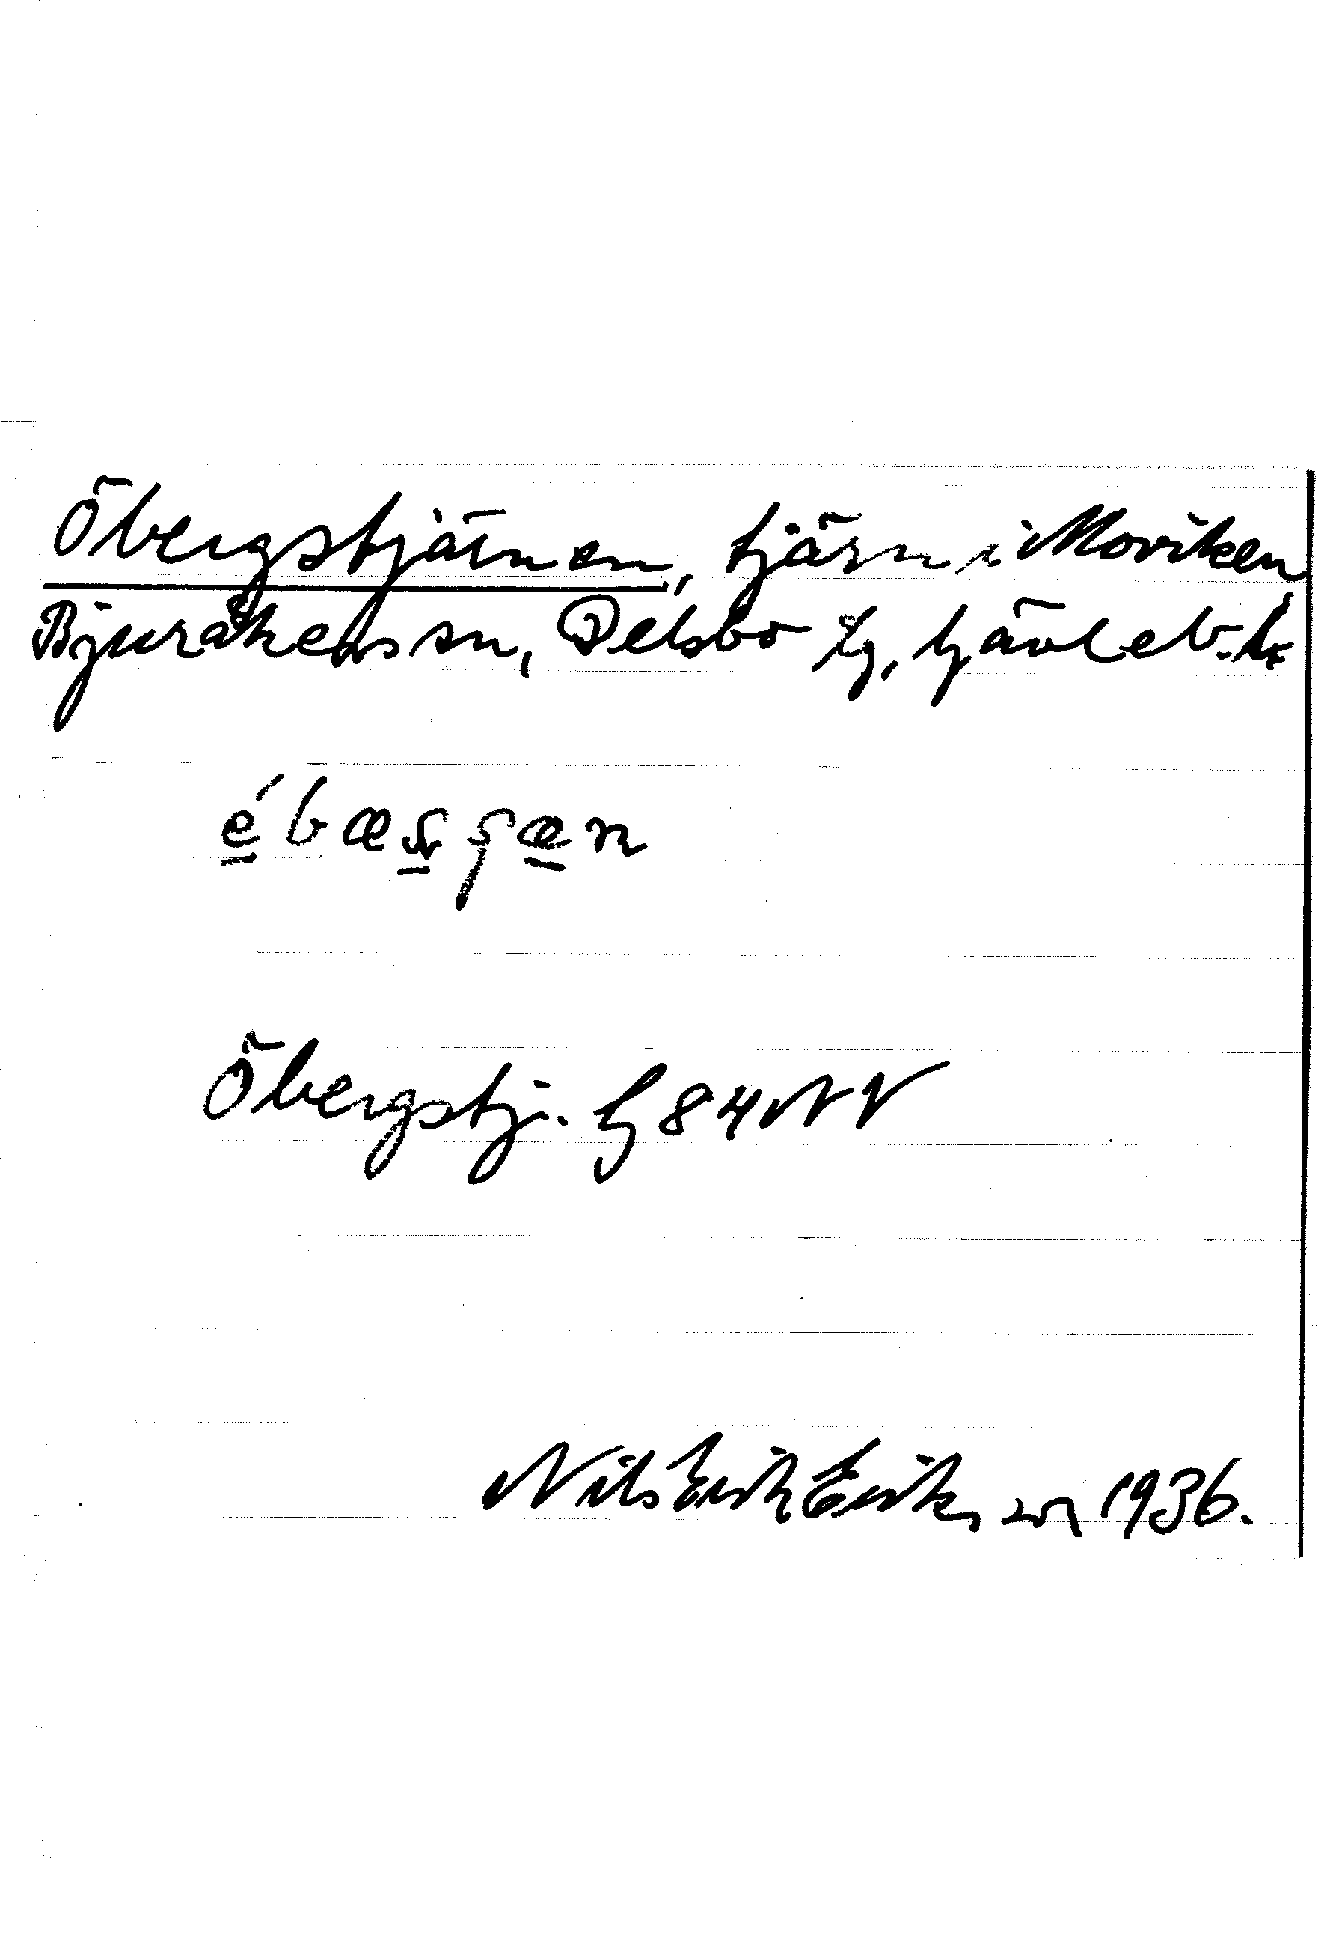 Öbergstjärnen, tjärn i Moviken
Bjuråkers sn, Delsbo tg, Gävleb. l.
Öbergstj. G 84 NV
Nils Erik Eriksson 1936.